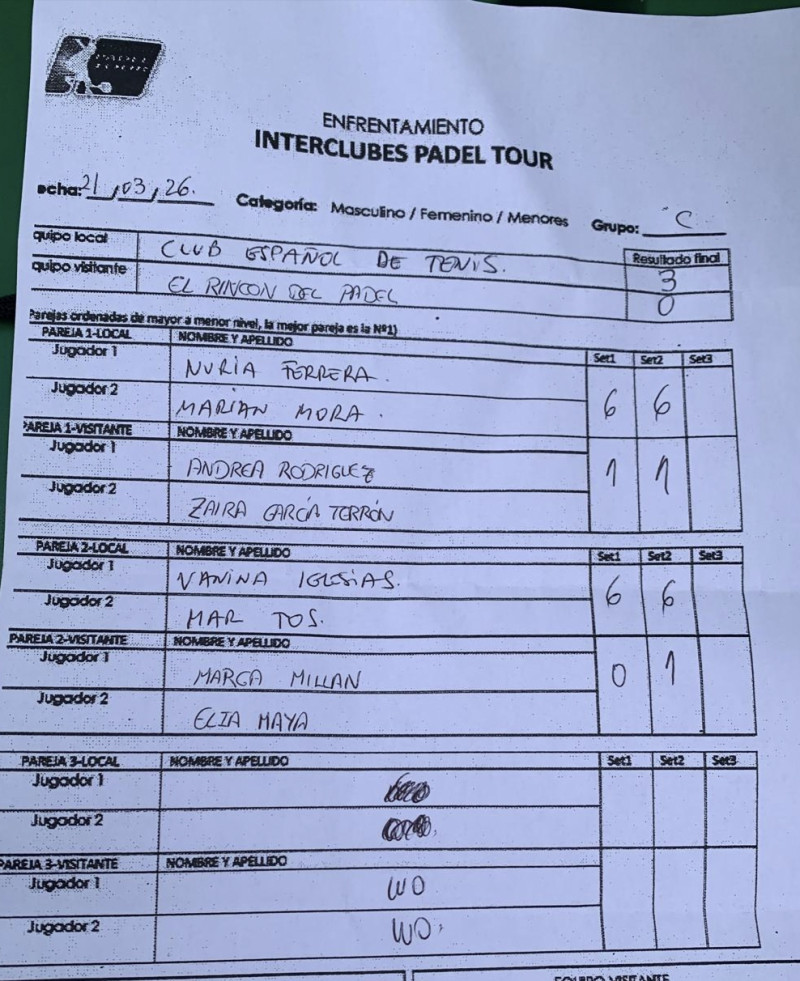 ENFRENTAMIENTO
INTERCLUBES PADEL TOUR
echa: 21/03/26. Categoría: Masculino / Femenino / Menores Grupo: C
quipo local CLUB ESPAÑOL DE TENIS. Resultado final
3
quipo visitante EL RINCON DEL PADEL 0
Parejas ordenadas de mayor a menor nivel, la mejor pareja es la Nº1)
PAREJA 1-LOCAL NOMBRE Y APELLIDO Set1 Set2 Set3
Jugador 1 NURIA FERRERA.
Jugador 2 MARIAN MORA. 6 6
PAREJA 1-VISITANTE NOMBRE Y APELLIDO
Jugador 1 ANDREA RODRIGUEZ 1 1
Jugador 2 ZAIRA GARCÍA TERRÓN
PAREJA 2-LOCAL NOMBRE Y APELLIDO Set1 Set2 Set3
Jugador 1 VANINA IGLESIAS. 6 6
Jugador 2 MAR TOS.
PAREJA 2-VISITANTE NOMBRE Y APELLIDO
Jugador 1 MARGA MILLAN 0 1
Jugador 2 ELIA MAYA
PAREJA 3-LOCAL NOMBRE Y APELLIDO Set1 Set2 Set3
Jugador 1
Jugador 2
PAREJA 3-VISITANTE NOMBRE Y APELLIDO
Jugador 1 WO
Jugador 2 WO.
EQUIPO VISITANTE